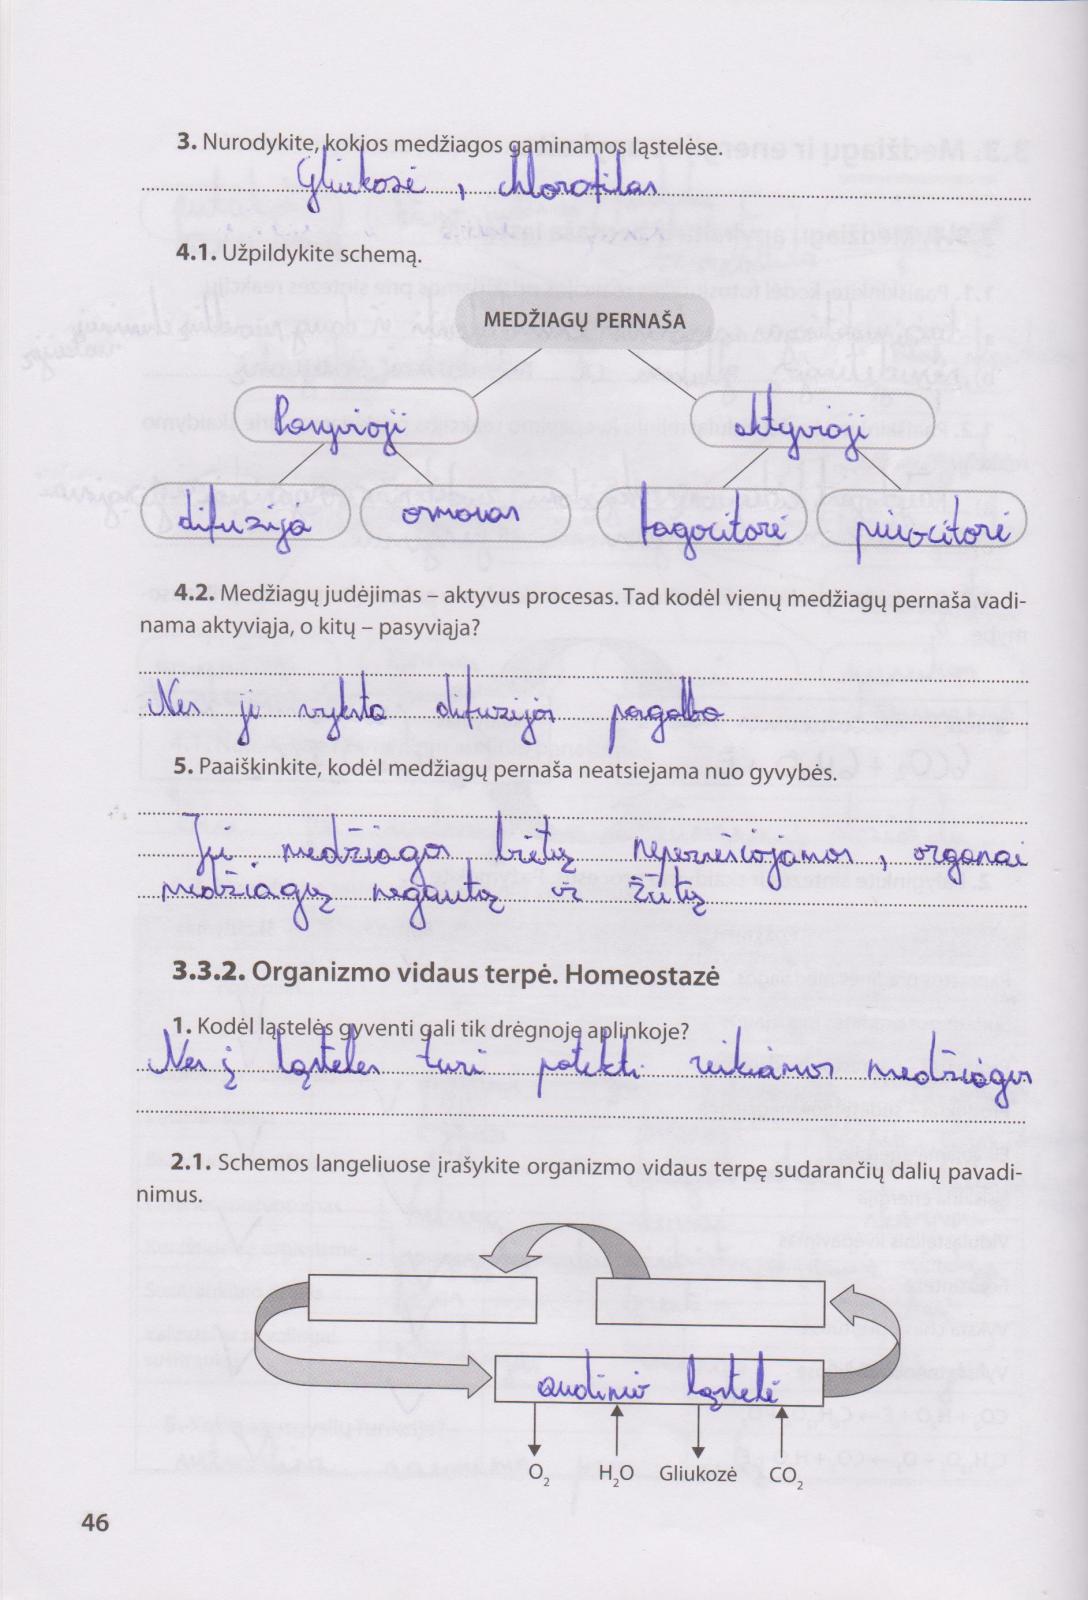 3. Nurodykite, kokios medžiagos gaminamos ląstelėse.
Gliukozė, chlorofilas
4.1. Užpildykite schemą.
MEDŽIAGŲ PERNAŠA
Pasyvioji
aktyvioji
difuzija
osmosas
fagocitozė
pinocitozė
4.2. Medžiagų judėjimas – aktyvus procesas. Tad kodėl vienų medžiagų pernaša vadi-
nama aktyviąja, o kitų – pasyviąja?
Nes ji vyksta difuzijos pagalba
5. Paaiškinkite, kodėl medžiagų pernaša neatsiejama nuo gyvybės.
Jei medžiagos būtų nepernešiojamos, organai
medžiagų negautų ir žūtų
3.3.2. Organizmo vidaus terpė. Homeostazė
1. Kodėl ląstelės gyventi gali tik drėgnoje aplinkoje?
Nes į ląsteles turi patekti reikiamos medžiagos
2.1. Schemos langeliuose įrašykite organizmo vidaus terpę sudarančių dalių pavadi-
nimus.
audinio ląstelė
O₂ H₂O Gliukozė CO₂
46